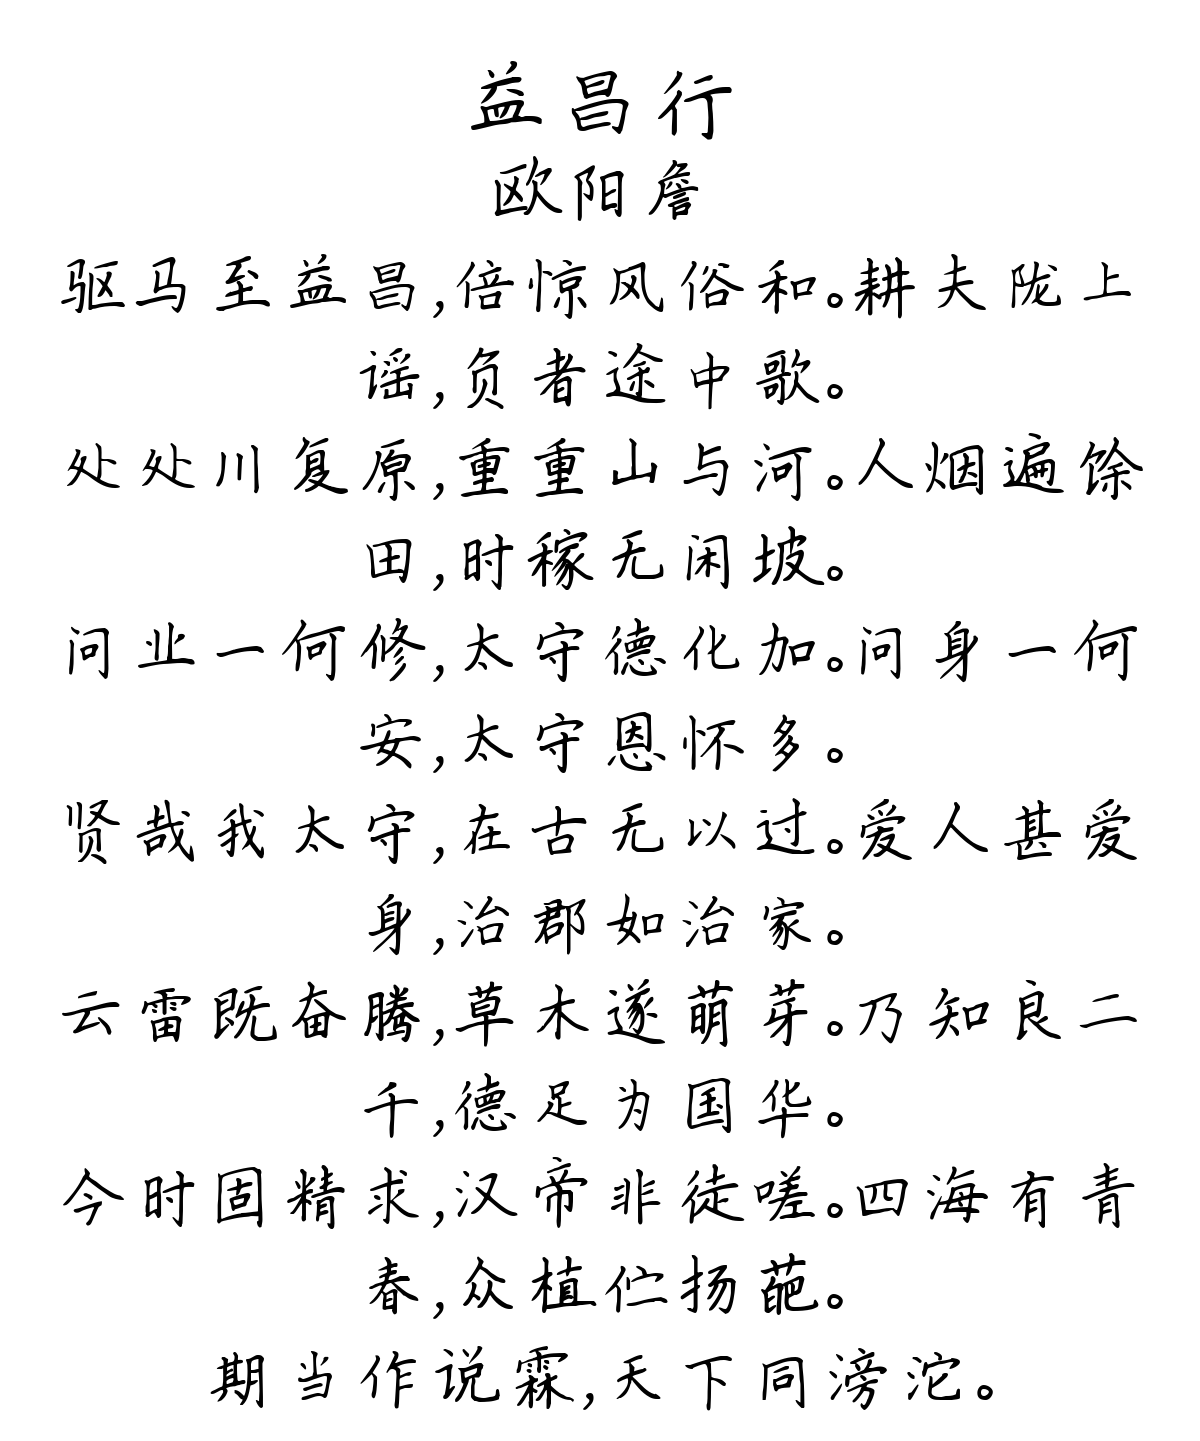 益昌行
欧阳詹
驱马至益昌,倍惊风俗和。耕夫陇上
谣,负者途中歌。
处处川复原,重重山与河。人烟遍馀
田,时稼无闲坡。
问业一何修,太守德化加。问身一何
安,太守恩怀多。
贤哉我太守,在古无以过。爱人甚爱
身,治郡如治家。
云雷既奋腾,草木遂萌芽。乃知良二
千,德足为国华。
今时固精求,汉帝非徒嗟。四海有青
春,众植伫扬葩。
期当作说霖,天下同滂沱。